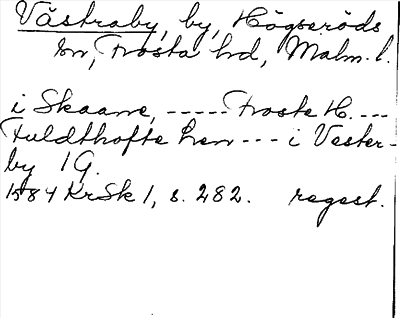 Västraby, by, Högseröds
sn, Frosta hd, Malm. l.
i Skaane, ----- Froste H. ---
Fuldthofte Len --- i Vester-
by 1 G.
1584 KrSk 1, s. 282. regest.